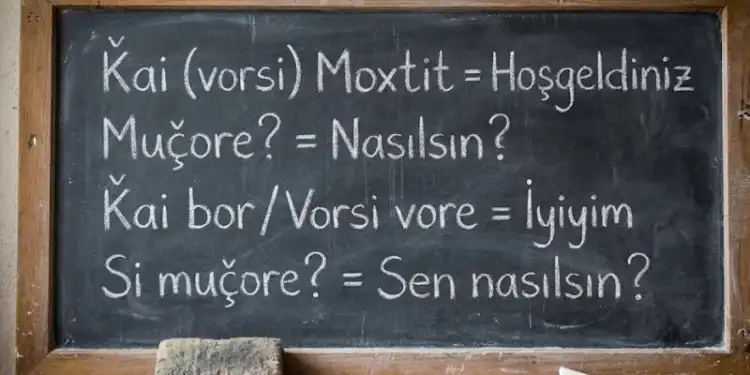 Ǩai (vorsi) Moxtit = Hoşgeldiniz
Muç̌ore? = Nasılsın?
Ǩai bor/Vorsi vore = İyiyim
Si muç̌ore? = Sen nasılsın?